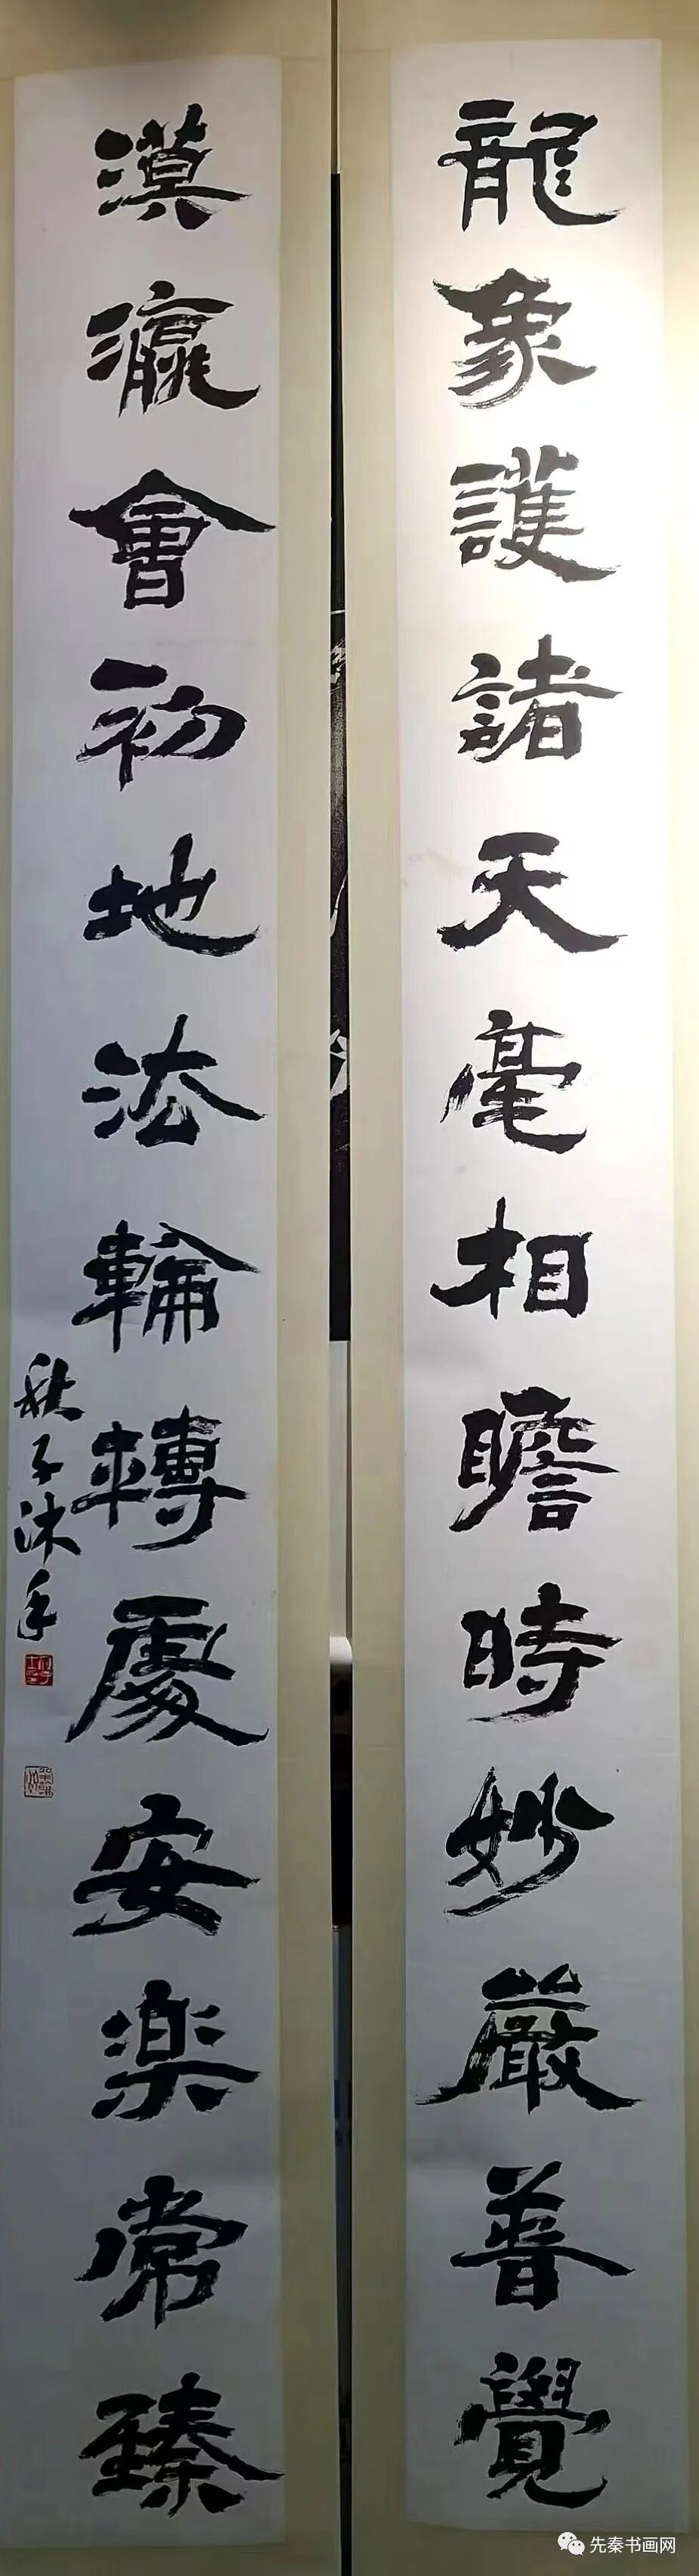 龍象護諸天毫相瞻時妙嚴普覺
漠瀛會初地法輪轉處安楽常臻
秋子沐手
先秦书画网